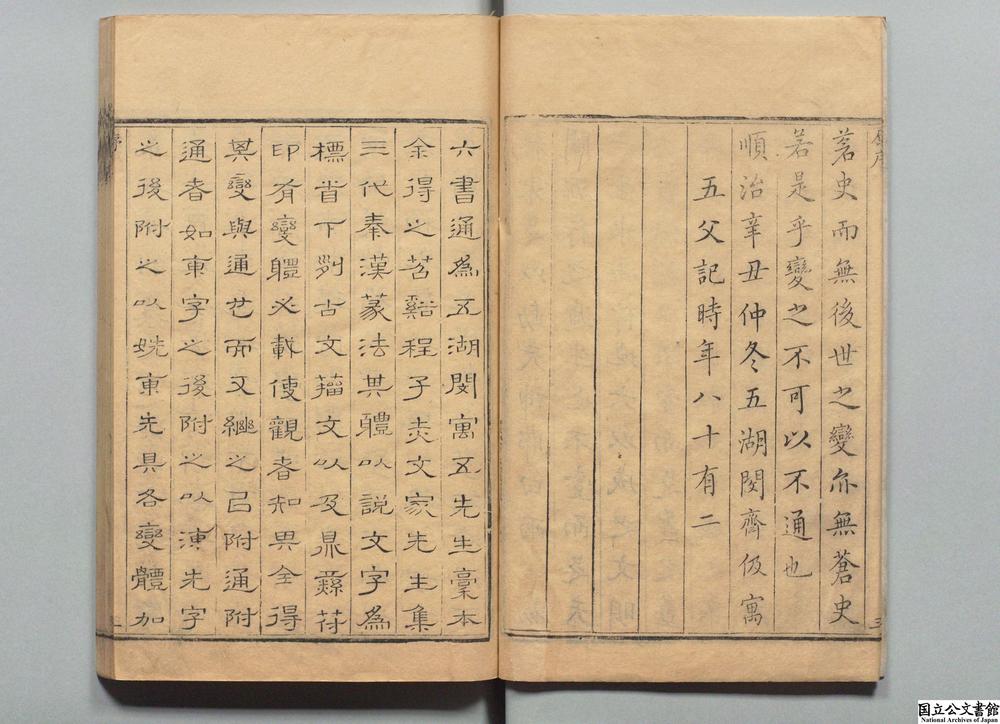 原序
蒼史而無後世之變亦無蒼史
若是乎變之不可以不通也
順治辛丑仲冬五湖閔齊伋寓
五父記時年八十有二
三
六書通爲五湖閔寓五先生稾本
余得之苕谿程子赤文家先生集
三代秦漢篆法其體以說文字爲
標首下列古文籀文以及鼎彝符
印有變體必載使觀者知其全得
其變與通也而又繼之曰附通附
通者如東字之後附之以涷先字
之後附之以姺東先具各變體加
序
一
国立公文書館
National Archives of Japan